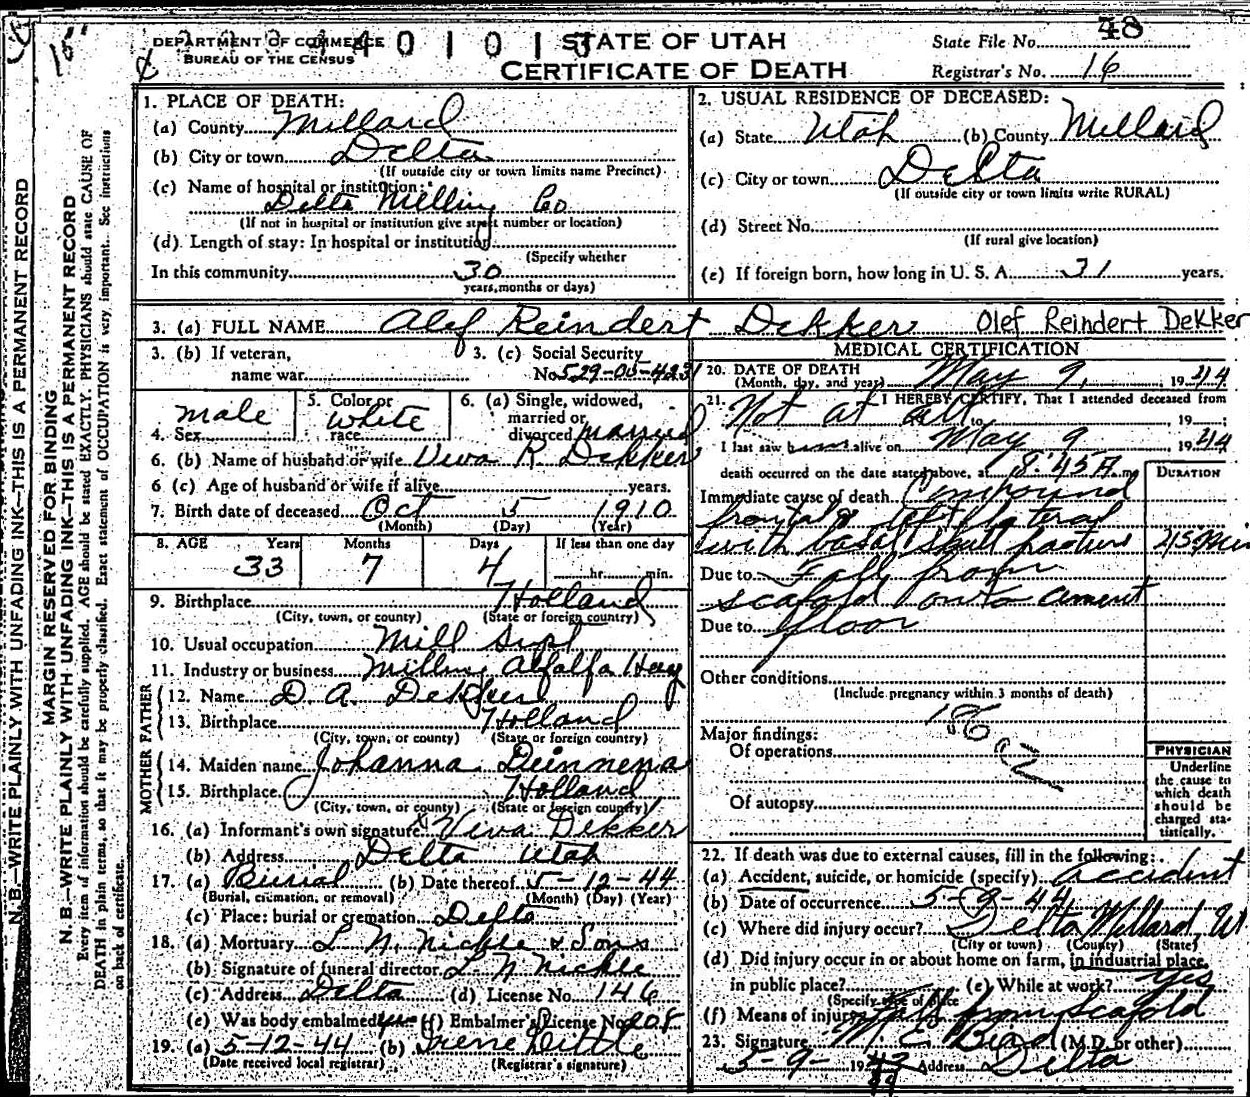 48
DEPARTMENT OF COMMERCE
BUREAU OF THE CENSUS
STATE OF UTAH
CERTIFICATE OF DEATH
State File No.
Registrar's No. 16
1. PLACE OF DEATH:
(a) County Millard
(b) City or town Delta
(If outside city or town limits name Precinct)
(c) Name of hospital or institution:
Delta Milling Co
(If not in hospital or institution give street number or location)
(d) Length of stay: In hospital or institution
(Specify whether
In this community 30
years, months or days)
2. USUAL RESIDENCE OF DECEASED:
(a) State Utah (b) County Millard
(c) City or town Delta
(If outside city or town limits write RURAL)
(d) Street No.
(If rural give location)
(e) If foreign born, how long in U. S. A. 31 years.
3. (a) FULL NAME Alef Reindert Dekker Olef Reindert DeKker
3. (b) If veteran,
name war
3. (c) Social Security
No. 529-05-4231
4. Sex male
5. Color or
race white
6. (a) Single, widowed,
married or
divorced married
6. (b) Name of husband or wife Viva R. Dekker
6 (c) Age of husband or wife if alive years.
7. Birth date of deceased Oct 5 1910
(Month) (Day) (Year)
8. AGE Years Months Days If less than one day
33 7 4 hr. min.
9. Birthplace Holland
(City, town, or county) (State or foreign country)
10. Usual occupation Mill Supt
11. Industry or business Milling Alfalfa Hay
FATHER
12. Name D. A. Dekker
13. Birthplace Holland
(City, town, or county) (State or foreign country)
MOTHER
14. Maiden name Johanna
15. Birthplace Holland
(City, town, or county) (State or foreign country)
16. (a) Informant's own signature x Viva Dekker
(b) Address Delta Utah
17. (a) Burial (b) Date thereof 5-12-44
(Burial, cremation, or removal) (Month) (Day) (Year)
(c) Place: burial or cremation Delta
18. (a) Mortuary L. N. Nickle & Sons
(b) Signature of funeral director L N Nickle
(c) Address Delta (d) License No. 146
(e) Was body embalmed yes (f) Embalmer's License No. 208
19. (a) 5-12-44 (b) Irene Little
(Date received local registrar) (Registrar's signature)
MEDICAL CERTIFICATION
20. DATE OF DEATH
(Month, day, and year) May 9, 1944
21. I HEREBY CERTIFY, That I attended deceased from
Not at all to 19 ;
I last saw him alive on May 9 1944
death occurred on the date stated above, at 8:45 A. m.
DURATION
Immediate cause of death Compound
frontal & left lateral
with basal skull fracture 45 Min
Due to Fall from
scafold onto cement
Due to floor
Other conditions
(Include pregnancy within 3 months of death)
186
Major findings:
Of operations
Of autopsy
PHYSICIAN
Underline
the cause to
which death
should be
charged sta-
tistically.
22. If death was due to external causes, fill in the following:
(a) Accident, suicide, or homicide (specify) accident
(b) Date of occurrence 5-9-44
(c) Where did injury occur? Delta Millard, Ut
(City or town) (County) (State)
(d) Did injury occur in or about home on farm, in industrial place,
in public place? (e) While at work? yes
(Specify type of place
(f) Means of injury Fall from scafold
23. Signature M. E. Bird (M.D. or other)
5-9- 1944 Address Delta
N. B.—WRITE PLAINLY WITH UNFADING INK—THIS IS A PERMANENT RECORD
MARGIN RESERVED FOR BINDING
N. B.—WRITE PLAINLY WITH UNFADING INK—THIS IS A PERMANENT RECORD
Every item of information should be carefully supplied. AGE should be stated EXACTLY. PHYSICIANS should state CAUSE OF
DEATH in plain terms, so that it may be properly classified. Exact statement of OCCUPATION is very important. See instructions
on back of certificate.